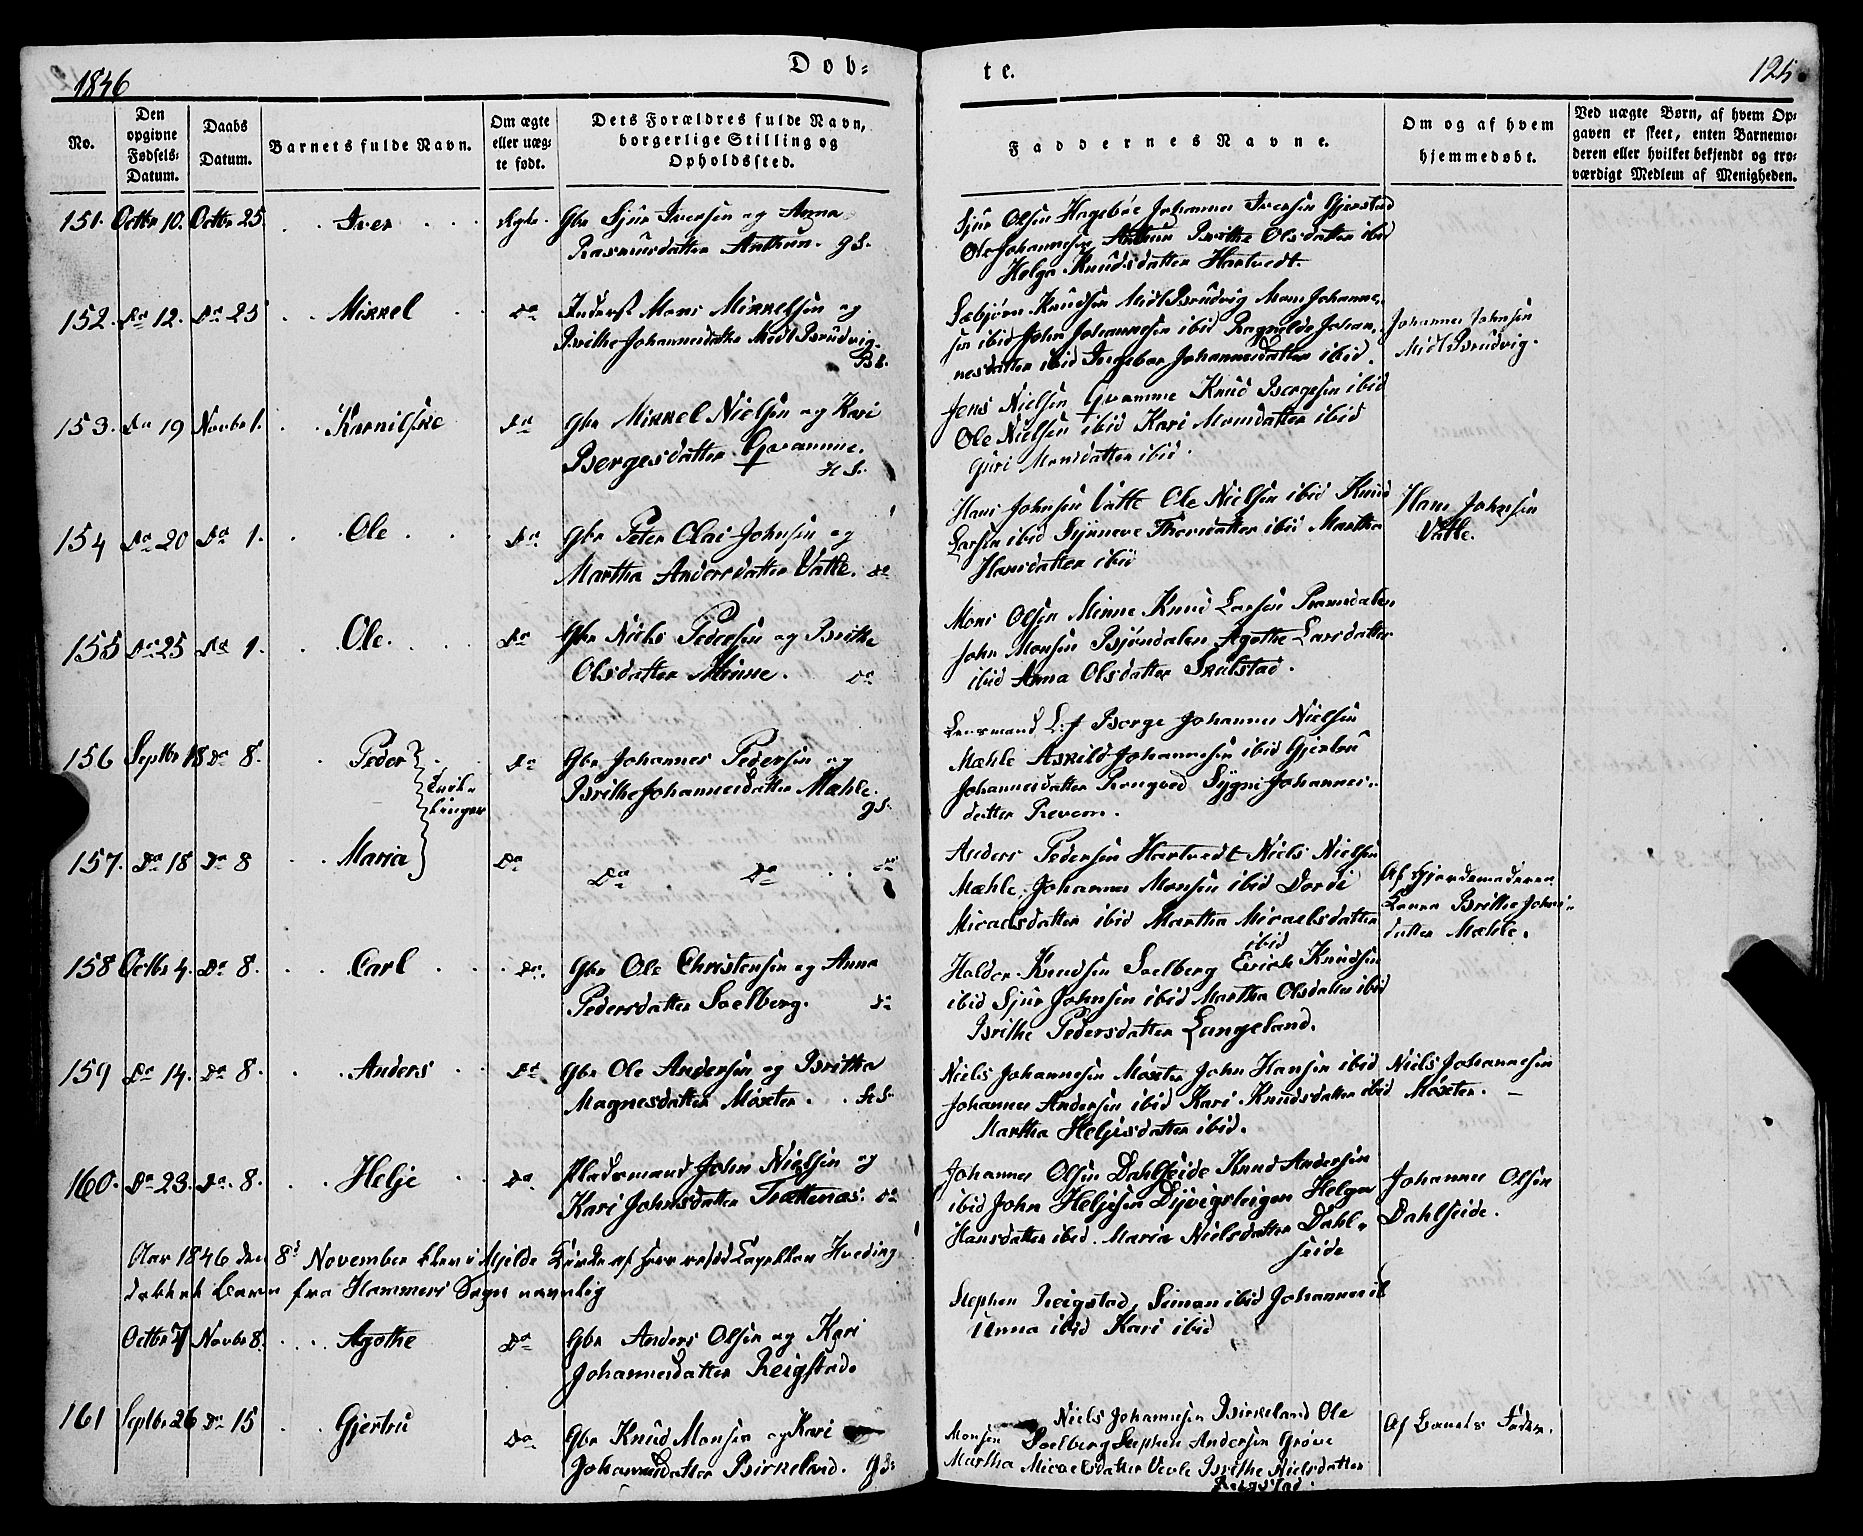 1846
Døb-
te.
125
No.
Den opgivne Fødsels-Datum.
Daabs Datum.
Barnets fulde Navn.
Om ægte eller uæg-te født.
Dets Forældres fulde Navn, borgerlige Stilling og Opholdssted.
Faddernes Navne.
Om og af hvem hjemmedøbt.
Ved uægte Børn, af hvem Op-gaven er skeet, enten Barnemo-deren eller hvilket bekjendt og tro-værdigt Medlem af Menigheden.
151. Octbr 10. Octbr 25. Iver Ægte. Gbr Sjur Iversen og Anna
Rasmusdatter Anthun. gS.
Sjur Olsen Hagebøe Johannes Iversen Gjerstad
Ole Johannesen Anthun Brithe Olsdatter ibid
Helga Knudsdatter Hartvedt.
152. Do 12. Do 25 Mikkel Do Inderst Mons Mikkelsen og
Brithe Johannesdatter Midt Brudvig.
BS.
Sæbjørn Knudsen Midt Brudvig Mons Johanne-
sen ibid John Johannesen ibid Ragnilde Johan-
nesdatter ibid Ingebor Johannesdatter ibid.
Johannes Johnsen
Midt Brudvig.
153. Do 19 Novbr 1. Kornilske Do Gbr Mikkel Nielsen og Kari
Børgesdatter Gvamme.
HS.
Jens Nielsen Gvamme Knud Børgesen ibid
Ole Nielsen ibid Kari Monsdatter ibid
Guri Monsdatter ibid.
154 Do 20 Do 1. Ole Do Gbr Peter Olai Johnsen og
Martha Andersdatter Vatle. Do
Hans Johnsen Vatle Ole Nielsen ibid Knud
Larsen ibid Synneve ibid Martha
Hansdatter ibid
Hans Johnsen
Vatle.
155 Do 25 Do 1. Ole. Do Gbr Niels Pedersen og Brithe
Olsdatter Minne. Do
Mons Olsen Minne Knud Larsen Bransdalen
John Monsen Bjøndalen Agothe Larsdatter
ibid Anna Olsdatter Skulstad.
156 Septbr 18 Do 8. Peder Do Gbr Johannes Pedersen og
Brithe Johannesdatter Mæhle.
gS.
Tvil-
linger
Lensmand Børge Johannes Nielsen
Mæhle Askild Johannesen ibid Gjertru
Johannesdatter Sygni Johannes-
datter Revem.
157. Do 18 Do 8 Maria Do Do Do Do
Anders Pedersen Hartvedt Niels Nielsen
Mæhle, Johannes Monsen ibid Dordi
Micaelsdatter ibid Martha Micaelsdatter
ibid
Af Gjordemoderen
Brithe Johans-
datter Mæhle.
158 Octbr 4. Do 8. Carl Do. Gbr Ole Christensen og Anna
Pedersdatter Soelberg. Do
Haldor Knudsen Soelberg Erich Knudsen
ibid Sjur Johnsen ibid Martha Olsdatter ibid
Brithe Pedersdatter Langeland.
159 Do 14. Do 8. Anders Do Gbr Ole Andersen og Britha
Magnesdatter Moxter. HS.
Niels Johannesen Moxter John Hansen ibid
Johannes Andersen ibid Kari Knudsdatter ibid
Martha Heljesdatter ibid.
Niels Johannesen
Moxter.
160. Do 23. Do. 8. Helje Do Pladsmand John Nielsen og
Kari Johnsdatter Trættenæs. Do
Johannes Olsen Dahlseide Knud Andersen
ibid John Heljesen Helga
Hansdatter ibid. Maria Nielsdatter Dahl-
seide
Johannes Olsen
Dahlseide.
Aar 1846 den 8d November blev i Mjelde Kirke af Herr resid Capellan Hveding
døbt et Barn fra Hammers Sogn navnlig
Octbr 7 Novbr 8. Agothe Do Gbr Anders Olsen og Kari
Johannesdatter Reigstad.
Stephen Reigstad, Simon ibid Johannes ib
Anna ibid Kari ibid
161 Septbr 26 Do 15 Gjertru Do Gbr Knud Monsen og Kari
Johannesdatter Birkeland. gS.
Niels Johannesen Birkeland Ole
Monsen Soelberg Stephen Andersen Grøve
Martha Micaelsdatter Vevle Brithe Nielsdatter
Reigstad.
Af Barnets Fader.